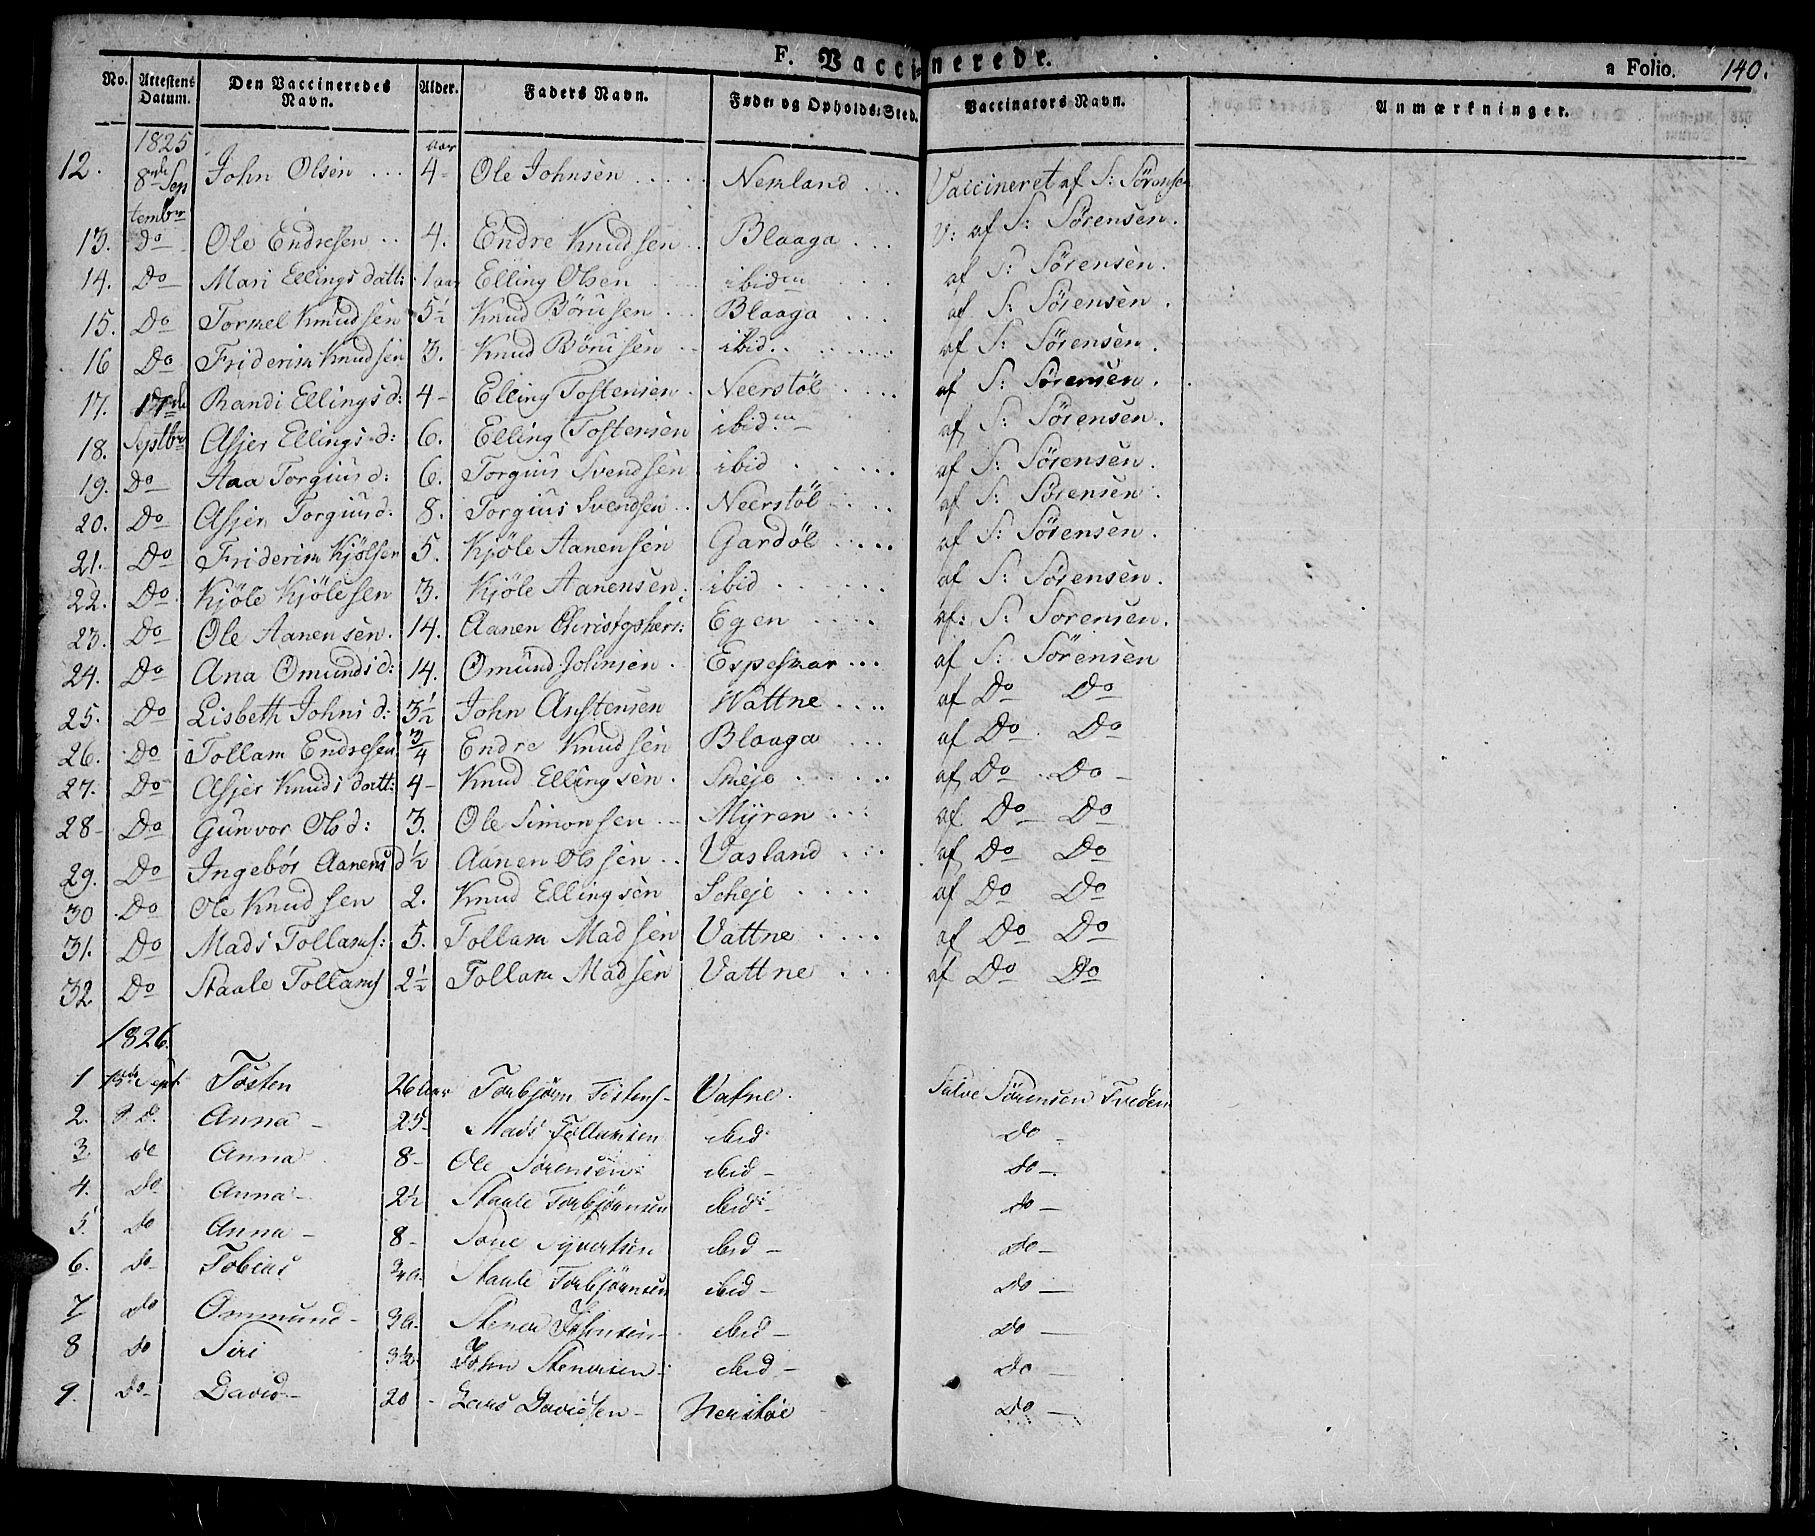 F. Vaccinerede. a Folio. 140.
No. Attestens Datum. Den Vaccineredes Navn. Alder. Faders Navn. Føde- og Opholds-Sted. Vaccinators Navn. Anmærkninger.
1825 aar
12. 8de Sep John Olsen ... 4- Ole Johnsen ..... Nemland ... Vaccineret af S: Sörensen
tembr
13. Do Ole Endresen .. 4. Endre Knudsen .. Blaaga ... V: af S: Sörensen.
14. Do Mari Ellings datt: 1 aar Elling Olsen ibidm af S: Sörensen.
15. Do Tormel Knudsen 5½ Knud Börusen .. Blaaga ... af S: Sörensen.
16 Do Friderim Knudsen 3. Knud Börusen .. ibid. af S: Sörensen.
17. 17de Randi Ellings d: 4- Elling Tostensen . Neerstöl af S: Sörensen.
18. Septbr Asjer Ellings d: 6. Elling Tostensen ibid.m af S: Sörensen.
19. Do Aaa Torgius d: 6. Torgius Svendsen ibid af S: Sörensen.
20. Do Asjer Torgius d: 8. Torgius Svendsen .. Neerstöl af S: Sörensen.
21. Do Friderim Kjölsen 5. Kjöle Aanensen Gardöl ..... af S: Sörensen.
22. Do Kjöle Kjölesen 3. Kjöle Aanensen. ibid af S: Sörensen.
23. Do Ole Aanensen. 14. Aanen Christophers: Egen .... af: S: Sorensen.
24. Do Ana Omunds d: 14. Omund Johnsen . Espeskar ... af S: Sörensen
25. Do Lisbeth Johns d: 3½ John Austensen Wattne .... af Do Do
26. Do Tollam Endresen ¾ Endre Knudsen Blaaga ... af Do Do
27. Do Asjer Knuds datt: 4- Knud Ellingsen . Skeje ...... af Do Do
28- Do Gunvor Ols d: 3. Ole Simonsen .. Myren ... af Do Do
29. Do Ingebör Aanens d ½ Aanen Olssen .. Vasland ... af Do Do
30 Do Ole Knudsen 2. Knud Ellingsen Scheje .... af Do Do
31. Do Mads Tollams: 5. Tollam Madsen Vattne .... af Do Do
32 Do Staale Tollams 2½ Tollam Madsen Vattne ... af Do Do
1826.
1 13de Sept. Tosten 26 aar Torbjörn Tostens- Vatne. Salve Sörensen Tveden
2. Do. Anna - 25- Mads Tollamsen ibid do -
3. do Anna 8- Ole Sörensen. ibid - do -
4. do Anna - 2½ Staale Torbjörnsen ibid - do -
5. do Anna - 8- Sivertsen ibid - do -
6. do Tobias ¾ a. Staale Torbjörnsen ibid - do -
7 do Ommund - 3 a. Stener Johnsen - ibid - do -
8 do Siri 3½ John Stenersen - ibid - do -
9. do- David - 20 - Lars Davidsen - Nerstöe do -